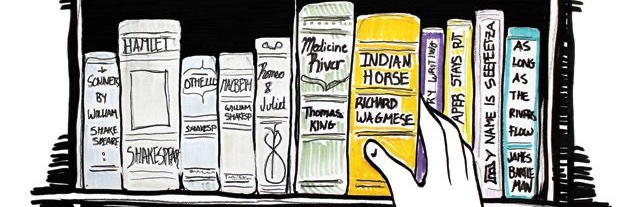 SONNETS
BY
WILLIAM
SHAKE
SPEARE
HAMLET
SHAKESPEAR
OTHELLO
SHAKESP
MACBETH
WILLIAM
SHAKESP
Romeo
&
Juliet
Medicine
River
Thomas
KING
INDIAN
HORSE
RICHARD
WAGMESE
RY WRITING
PAPER STAYS PUT
MY NAME IS SEEPEETZA
AS
LONG
AS
THE
RIVERS
FLOW
JAMES
BARTLE
MAN